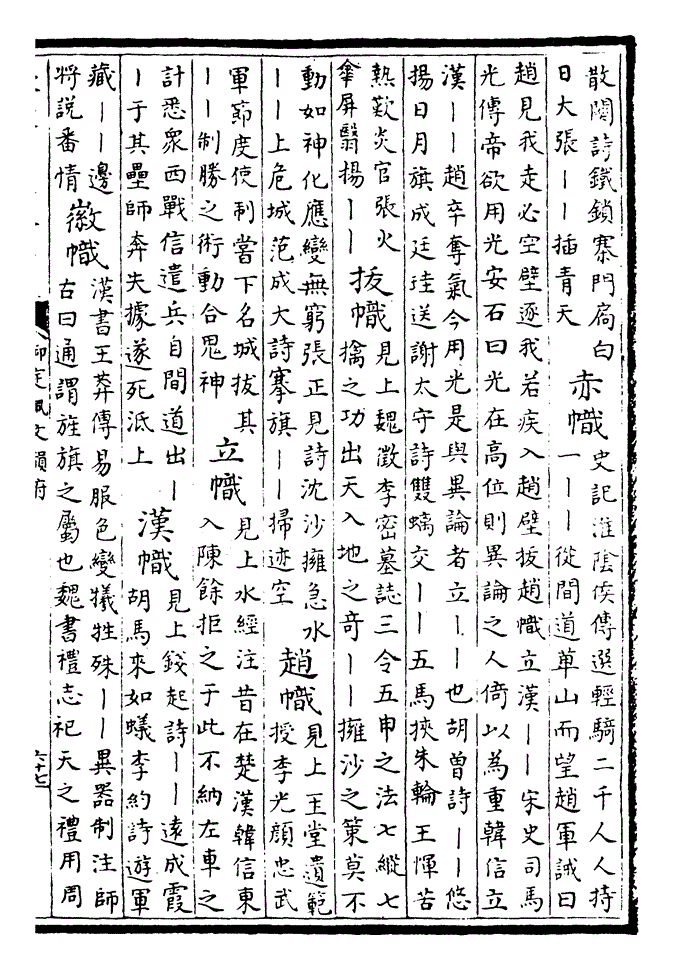 散關詩鐵鎖寨門扃白
日大張丨丨插青天
赤幟
史記淮陰侯傳選輕騎二千人人持
一丨丨從間道萆山而望趙軍誡曰
趙見我走必空壁逐我若疾入趙壁拔趙幟立漢丨丨宋史司馬
光傳帝欲用光安石曰光在高位則異論之人倚以為重韓信立
漢丨丨趙卒奪氣今用光是與異論者立丨丨也胡曾詩丨丨悠
揚日月旗成廷珪送謝太守詩雙螭交丨丨五馬挾朱輪王惲苦
熱歎炎官張火
傘屏翳揚丨丨
拔幟
見上魏徵李密墓誌三令五申之法七縱七
擒之功出天入地之奇丨丨擁沙之策莫不
動如神化應變無窮張正見詩沈沙擁急水
丨丨上危城范成大詩搴旗丨丨掃迹空
趙幟
見上王堂遺範
授李光顏忠武
軍節度使制當下名城拔其
丨丨制勝之術動合鬼神
立幟
見上水經注昔在楚漢韓信東
入陳餘拒之于此不納左車之
計悉衆西戰信遣兵自間道出丨
丨于其壘師奔失據遂死泜上
漢幟
見上錢起詩丨丨遠成霞
胡馬來如蟻李約詩遊軍
藏丨丨邊
將說番情
徽幟
漢書王莽傳易服色變犧牲殊丨丨異器制注師
古曰通謂旌旗之屬也魏書禮志祀天之禮用周
御定佩文韻府
六十七